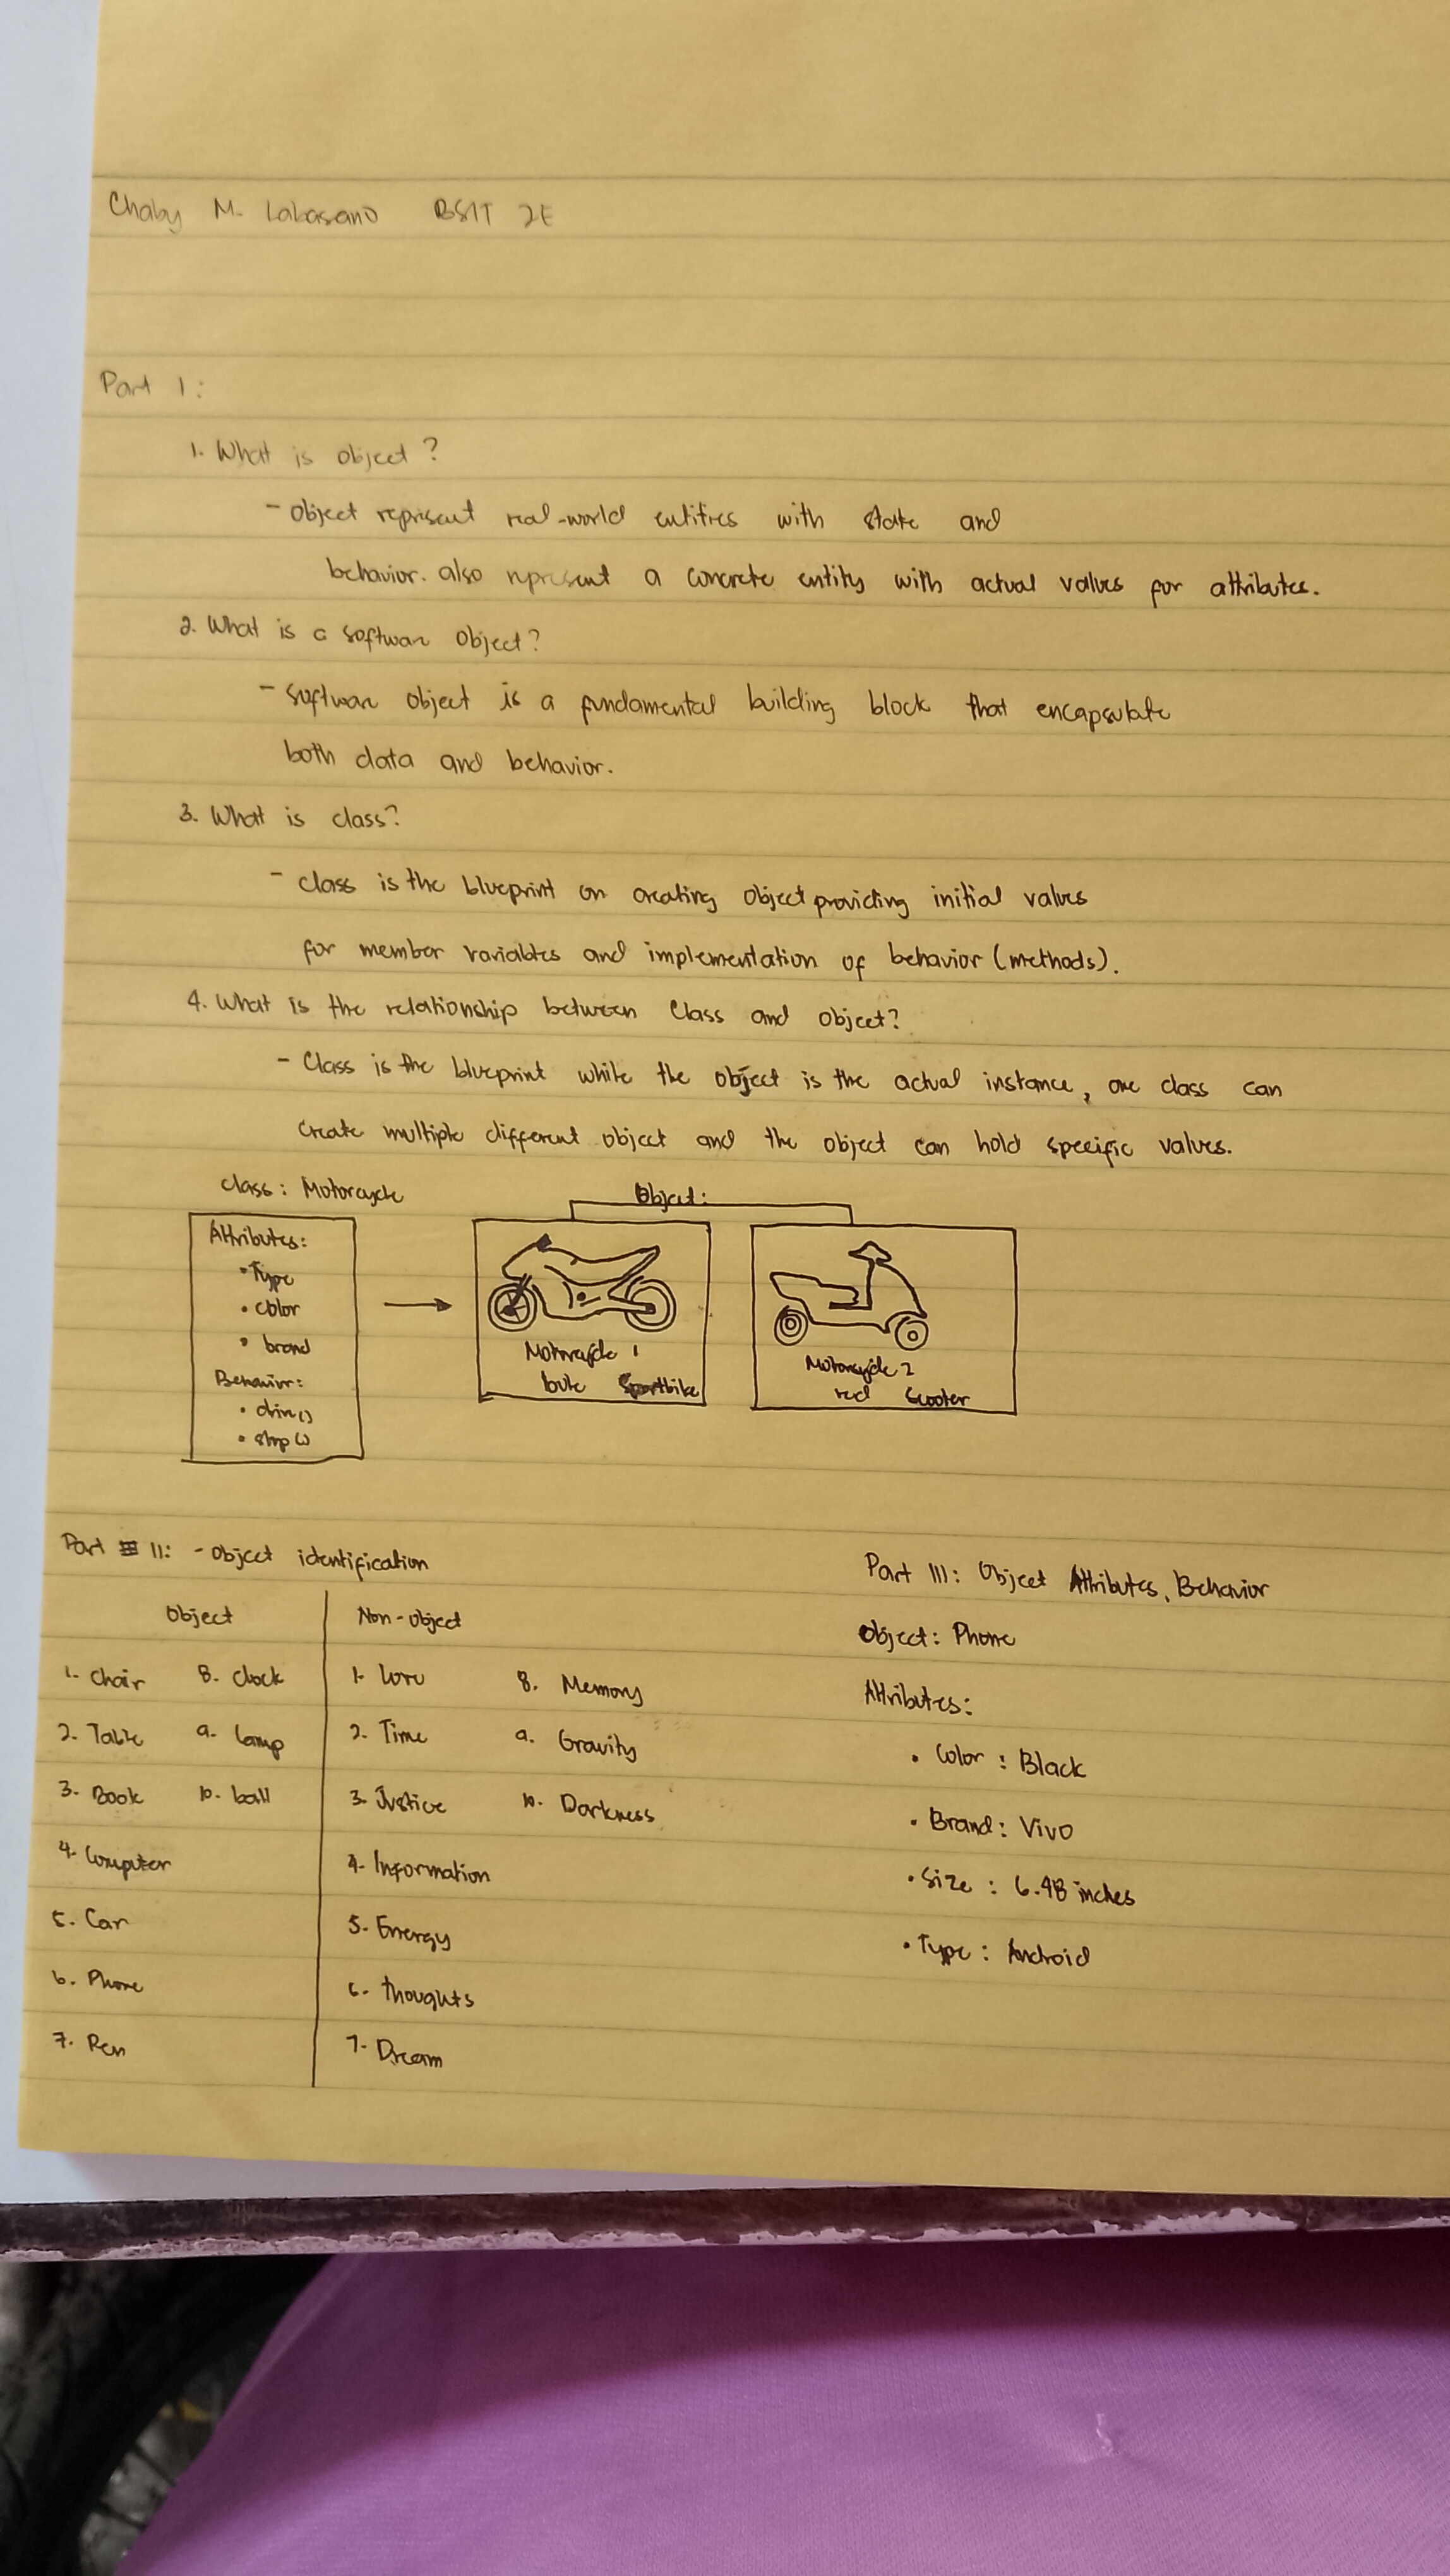 Chaby M. Labasano BSIT 2E
Part 1:
1. What is object?
- object represent real-world entities with state and
behavior. also represent a concrete entity with actual values for attributes.
2. What is a software object?
- software object is a fundamental building block that encapsulate
both data and behavior.
3. What is class?
- class is the blueprint on creating object providing initial values
for member variables and implementation of behavior (methods).
4. What is the relationship between Class and object?
- Class is the blueprint while the object is the actual instance, one class can
create multiple different object and the object can hold specific values.
class: Motorcycle
Attributes:
• Type
• color
• brand
Behavior:
• drive()
• stop()
Object:
Motorcycle 1
Sportbike
Motorcycle 2
red Scooter
Part II: - Object identification
Object
1. Chair
2. Table
3. Book
4. Computer
5. Car
6. Phone
7. Pen
8. Clock
9. lamp
10. ball
Non-object
1. Love
2. Time
3. Justice
4. Information
5. Energy
6. thoughts
7. Dream
8. Memory
9. Gravity
10. Darkness
Part III: Object Attributes, Behavior
Object: Phone
Attributes:
• Color : Black
• Brand: Vivo
• Size : 6.48 inches
• Type : Android